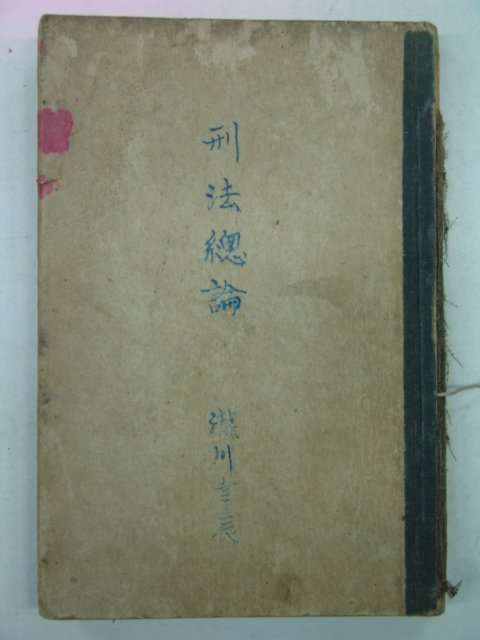 刑法總論
瀧川幸辰